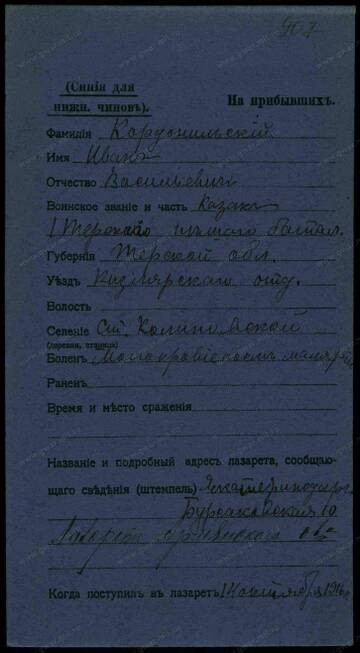 907
(Синія для
нижн. чиновъ).
На прибывшихъ.
Фамилія Кордонильскій
Имя Иванъ
Отчество Васильевичъ
Воинское званіе и часть Казакъ
1 Терскаго пѣшаго батал.
Губернія Терской обл.
Уѣздъ Кизлярскаго отд.
Волость
Селеніе Ст. Калиновской
(деревня, станица)
Боленъ Малокровіе послѣ маляріи
Раненъ
Время и мѣсто сраженія
Названіе и подробный адресъ лазарета, сообщаю-
щаго свѣдѣнія (штемпель) Екатеринодаръ
Бурсаковская 10
Лазаретъ Армянскаго
Когда поступилъ въ лазаретъ 14 октября 1916